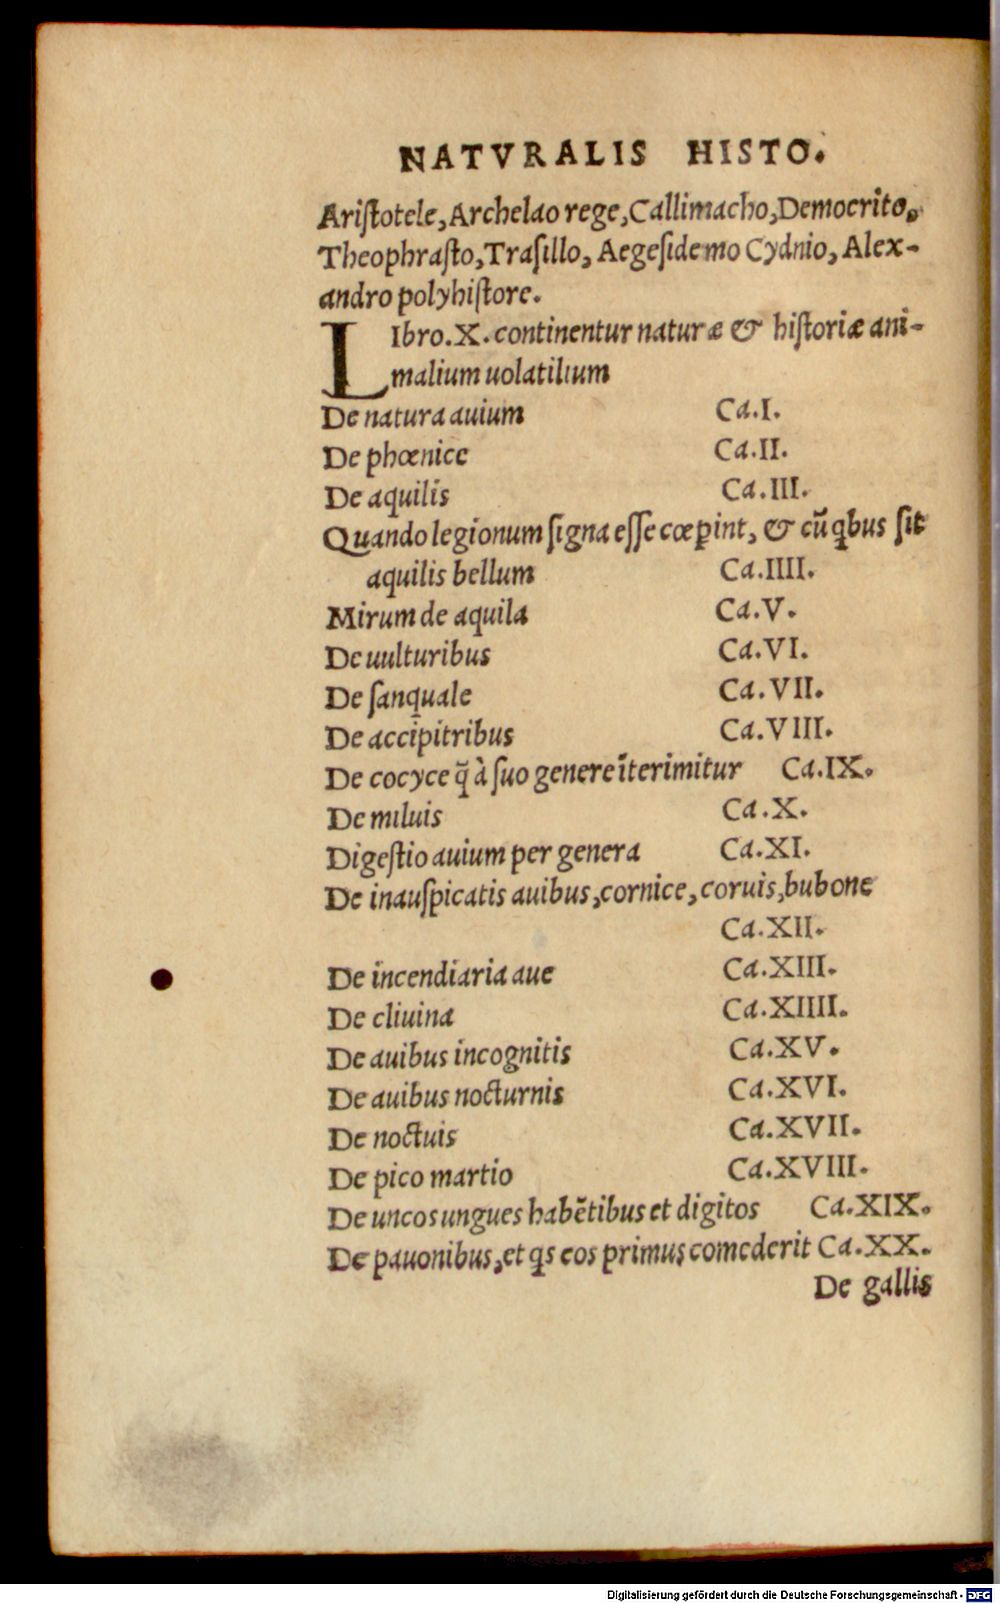 NATVRALIS HISTO.
Ariſtotele, Archelao rege, Callimacho, Democrito,
Theophraſto, Traſillo, Aegeſidemo Cydnio, Alex-
andro polyhiſtore.
LIbro.X.continentur naturæ & hiſtoriæ ani-
malium uolatilium
De natura auium Ca.I.
De phœnice Ca.II.
De aquilis Ca.III.
Quando legionum ſigna eſſe cœꝑint, & cũ qbus ſit
aquilis bellum Ca.IIII.
Mirum de aquila Ca.V.
De uulturibus Ca.VI.
De ſanquale Ca.VII.
De accipitribus Ca.VIII.
De cocyce q̃ à ſuo genere ĩterimitur Ca.IX.
De miluis Ca.X.
Digeſtio auium per genera Ca.XI.
De inauſpicatis auibus, cornice, coruis, bubone
Ca.XII.
De incendiaria aue Ca.XIII.
De cliuina Ca.XIIII.
De auibus incognitis Ca.XV.
De auibus nocturnis Ca.XVI.
De noctuis Ca.XVII.
De pico martio Ca.XVIII.
De uncos ungues habẽtibus et digitos Ca.XIX.
De pauonibus, et qs eos primus comederit Ca.XX.
De gallis
Digitalisierung gefördert durch die Deutsche Forschungsgemeinschaft - DFG